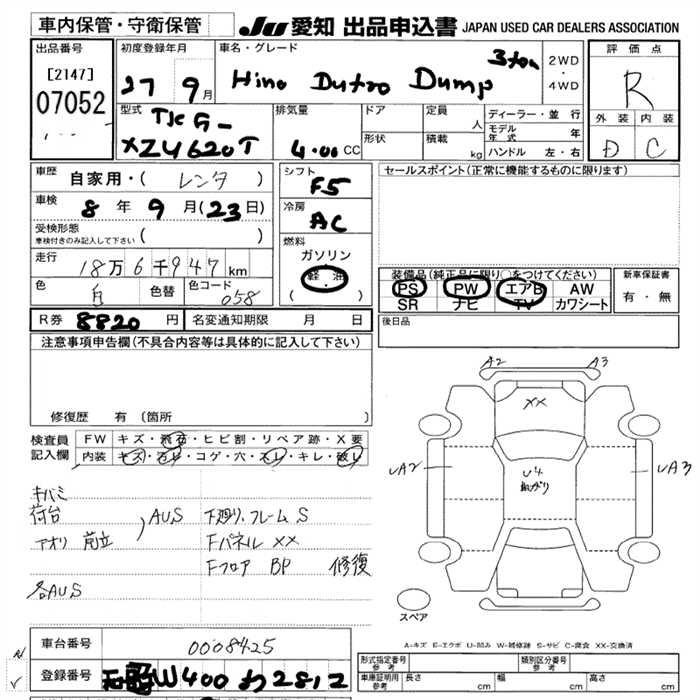 車内保管・守衛保管 JU 愛知 出品申込書 JAPAN USED CAR DEALERS ASSOCIATION
出品番号 [2147] 07052
初度登録年月 27 9月
車名・グレード Hino Dutro Dump 3ton
2WD・4WD
評価点 R
外装 D 内装 C
型式 TKG-XZU620T
排気量 4.00 CC
ドア 形状
定員 人
積載 kg
ディーラー・並行
モデル年式 年
ハンドル 左・右
車歴 自家用・(レンタ)
車検 8年 9月(23日)
受検形態 車検付きのみ記入して下さい ( )
走行 18万6千947km
色 白 色替 色コード 058
R券 8820円 名変通知期限 月 日
シフト F5
冷房 AC
燃料 ガソリン 軽油 ( )
セールスポイント(正常に機能するものに限ります)
装備品(純正品に限り○をつけてください)
PS PW エアB AW
SR ナビ TV カワシート
新車保証書 有・無
後日品
注意事項申告欄(不具合内容等は具体的に記入して下さい)
修復歴 有(箇所
検査員記入欄
FW キズ・飛石・ヒビ割・リペア跡・X要
内装 キズ・汚レ・コゲ・穴・スレ・キレ・破レ
キバミ
荷台
アオリ 鳥立 AUS
各AUS
下廻り,フレーム S
Fパネル XX
Fフロア BP 修復
A2 A3
XX
UA2 U4 UA3
スペア
A-キズ E-エクボ U-凹み W-補修跡 S-サビ C-腐食 XX-交換済
車台番号 0008425
登録番号 W400 わ2812
形式指定番号 参考
類別区分番号 参考
車庫証明用 参考 長さ cm 幅 cm 高さ cm